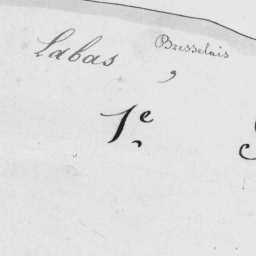 Labas Bresselais ,
1e